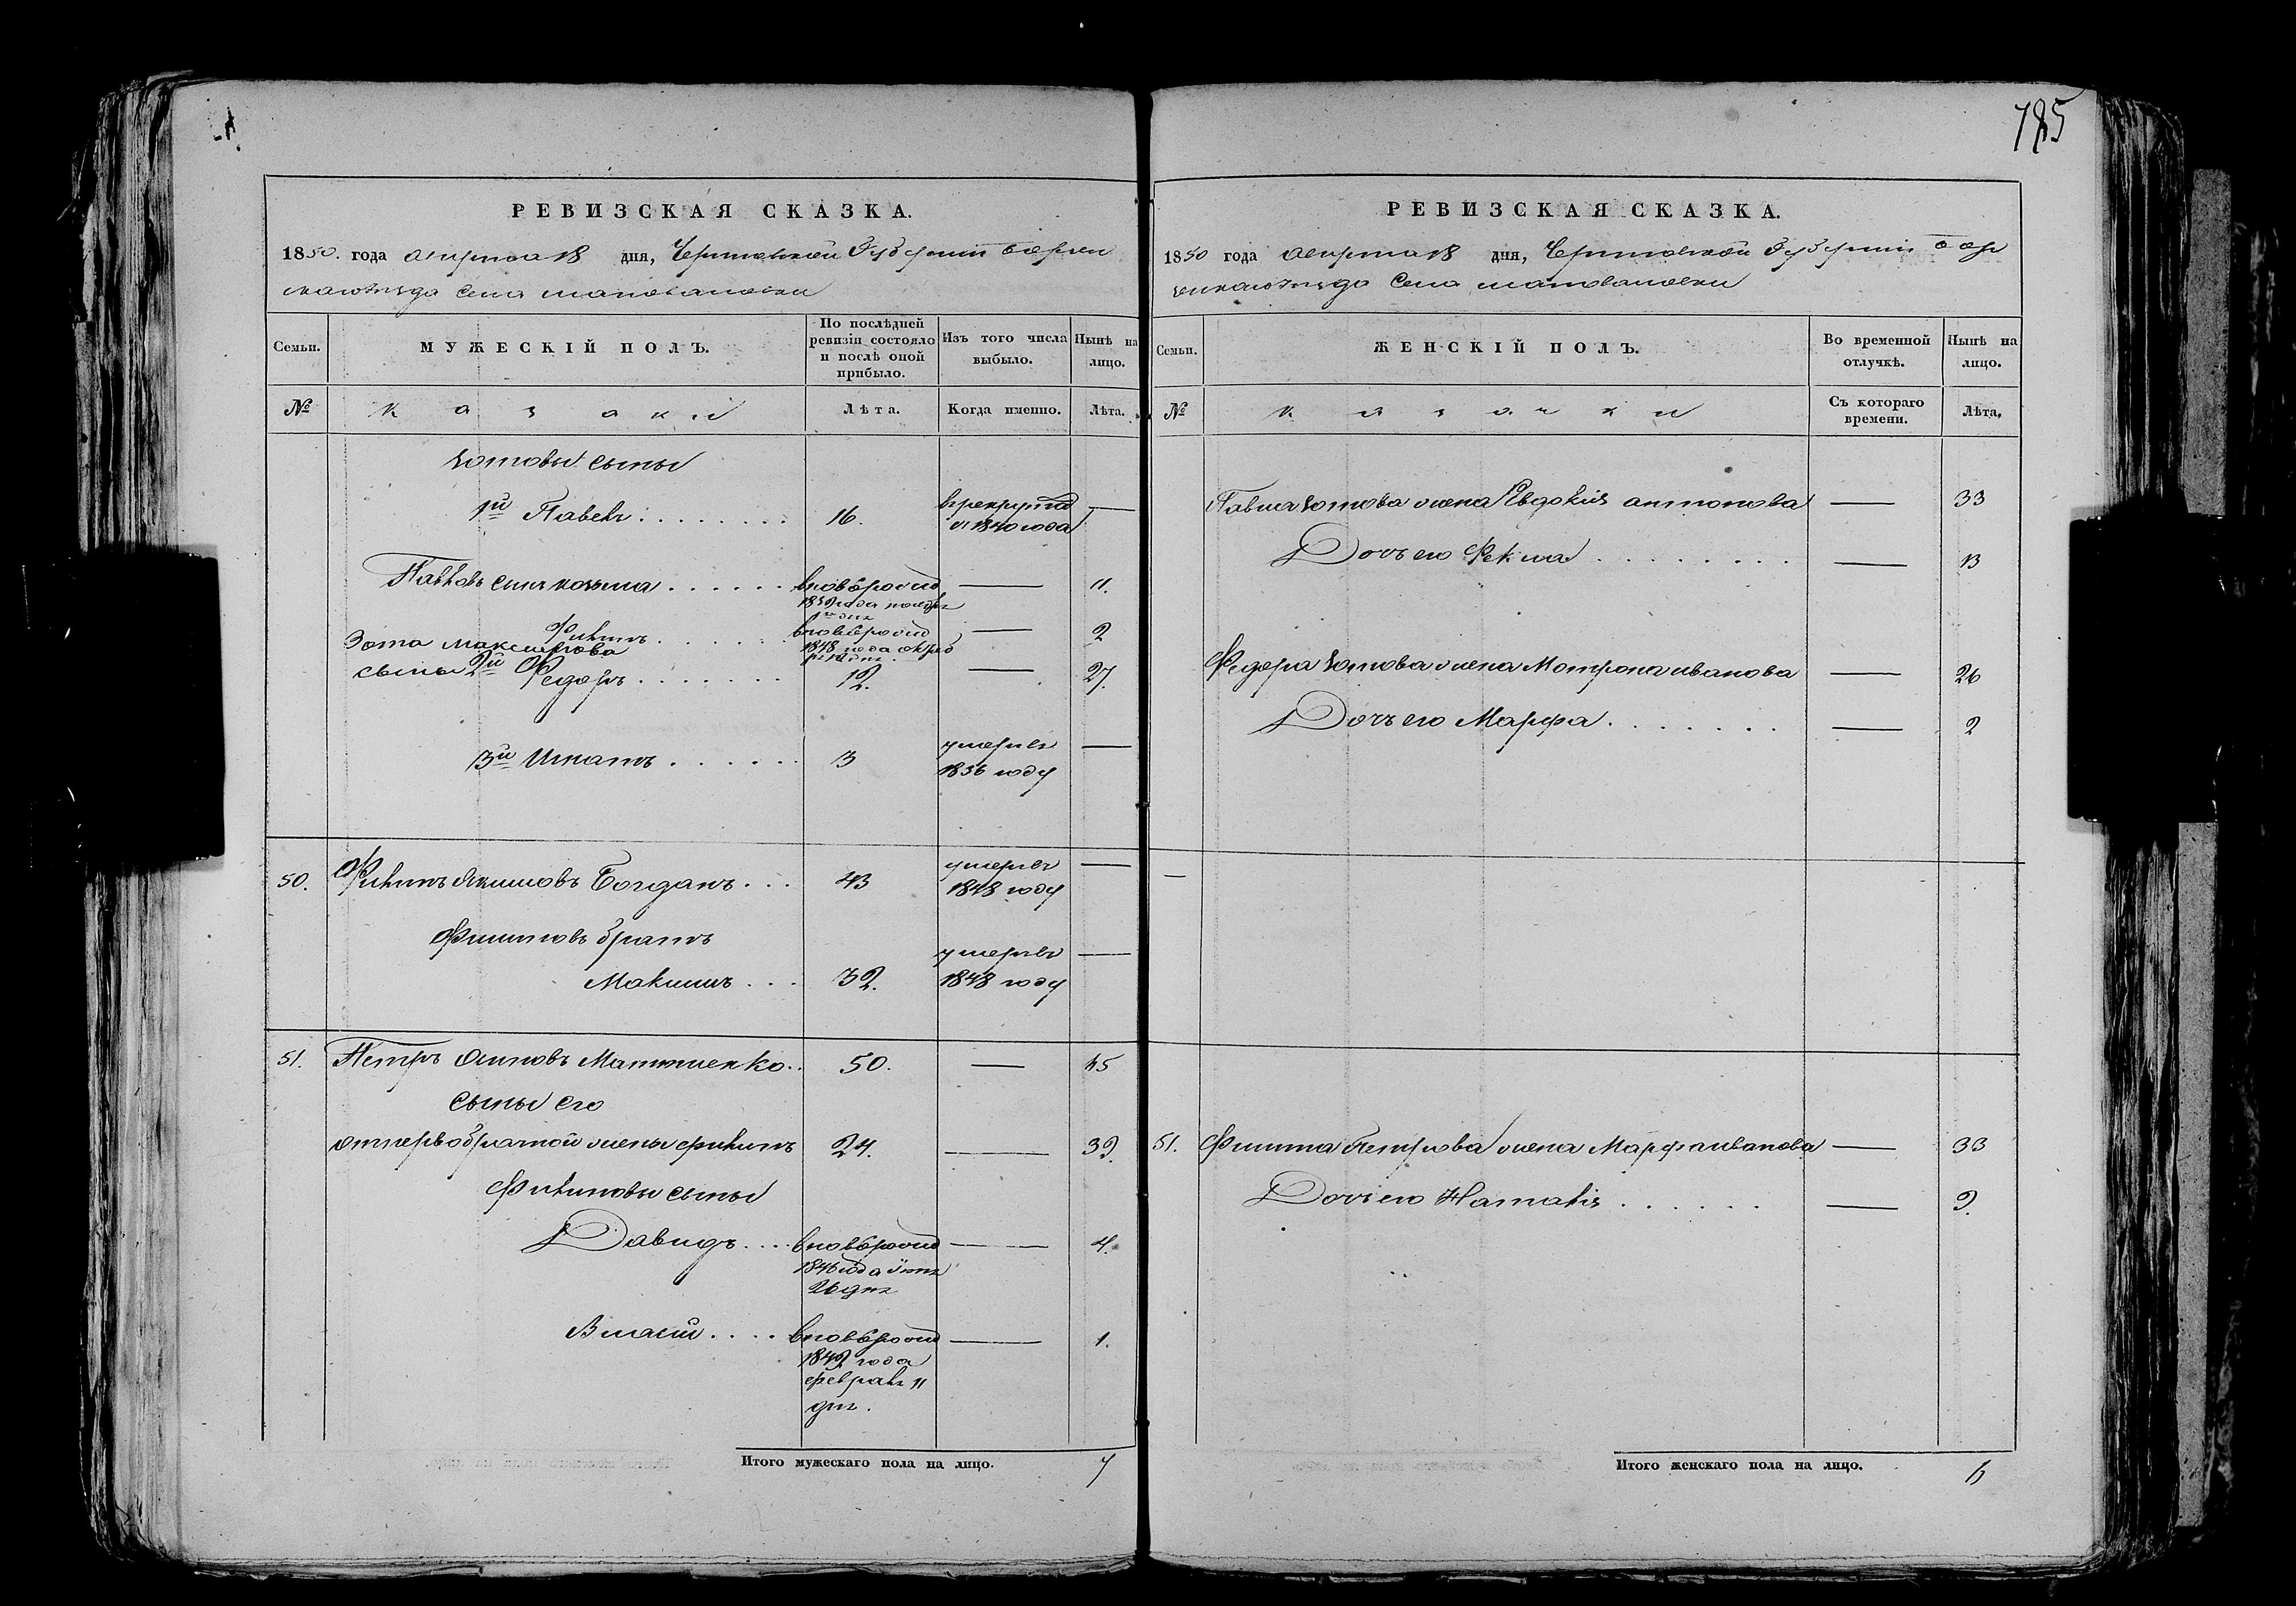 785
РЕВИЗСКАЯ СКАЗКА.
1850. года августа 18 дня, Черниговской Губернии Борзен
скаго уѣзда Села
Семьи.
МУЖЕСКІЙ ПОЛЪ.
По послѣдней ревизіи состояло и послѣ оной прибыло.
Изъ того числа выбыло.
Нынѣ на лицо.
№
казаки
Лѣта.
Когда именно.
Лѣта.
Зотовы сыны
1й Павелъ 16. в рекрутах с 1840 года —
Павловъ сынъ козьма вновьрожд — 11.
1839 года
1го дня
Филипъ вновьрожд — 2
Зота Максимова
1848 года
сыны 2й Федоръ 12. — 27.
3й Игнатъ 3 умеръ —
1836 году
50. Филипъ Якимовъ Богданъ 43 умеръ —
1848 году
Филиповъ братъ
умеръ —
Максимъ 32. 1848 году
51. Петръ Осиповъ Матюшенко 50. — 65
сыны его
отъ первобрачной жены филипъ 24. — 39.
Филиповы сыны
Давидъ вновьрожд — 4.
1846 года
26 дня
Власій вновьрожд — 1.
1849 года
февраля 11
дня.
Итого мужескаго пола на лицо. 7
РЕВИЗСКАЯ СКАЗКА.
1850 года августа 18 дня, Черниговской Губерніи Бор
зенскаго уѣзда Села
Семьи.
ЖЕНСКІЙ ПОЛЪ.
Во временной отлучкѣ.
Нынѣ на лицо.
№
казачки
Съ котораго времени.
Лѣта,
Павла Зотова жена Евдокія антонова — 33
Дочь его Фекла — 13
Федора Зотова жена Мотрона иванова — 26
Дочь его Марфа — 2
—
51. Филипа Петрова жена Марфа иванова — 33
Дочь его Наталія — 9.
Итого женскаго пола на лицо. 6